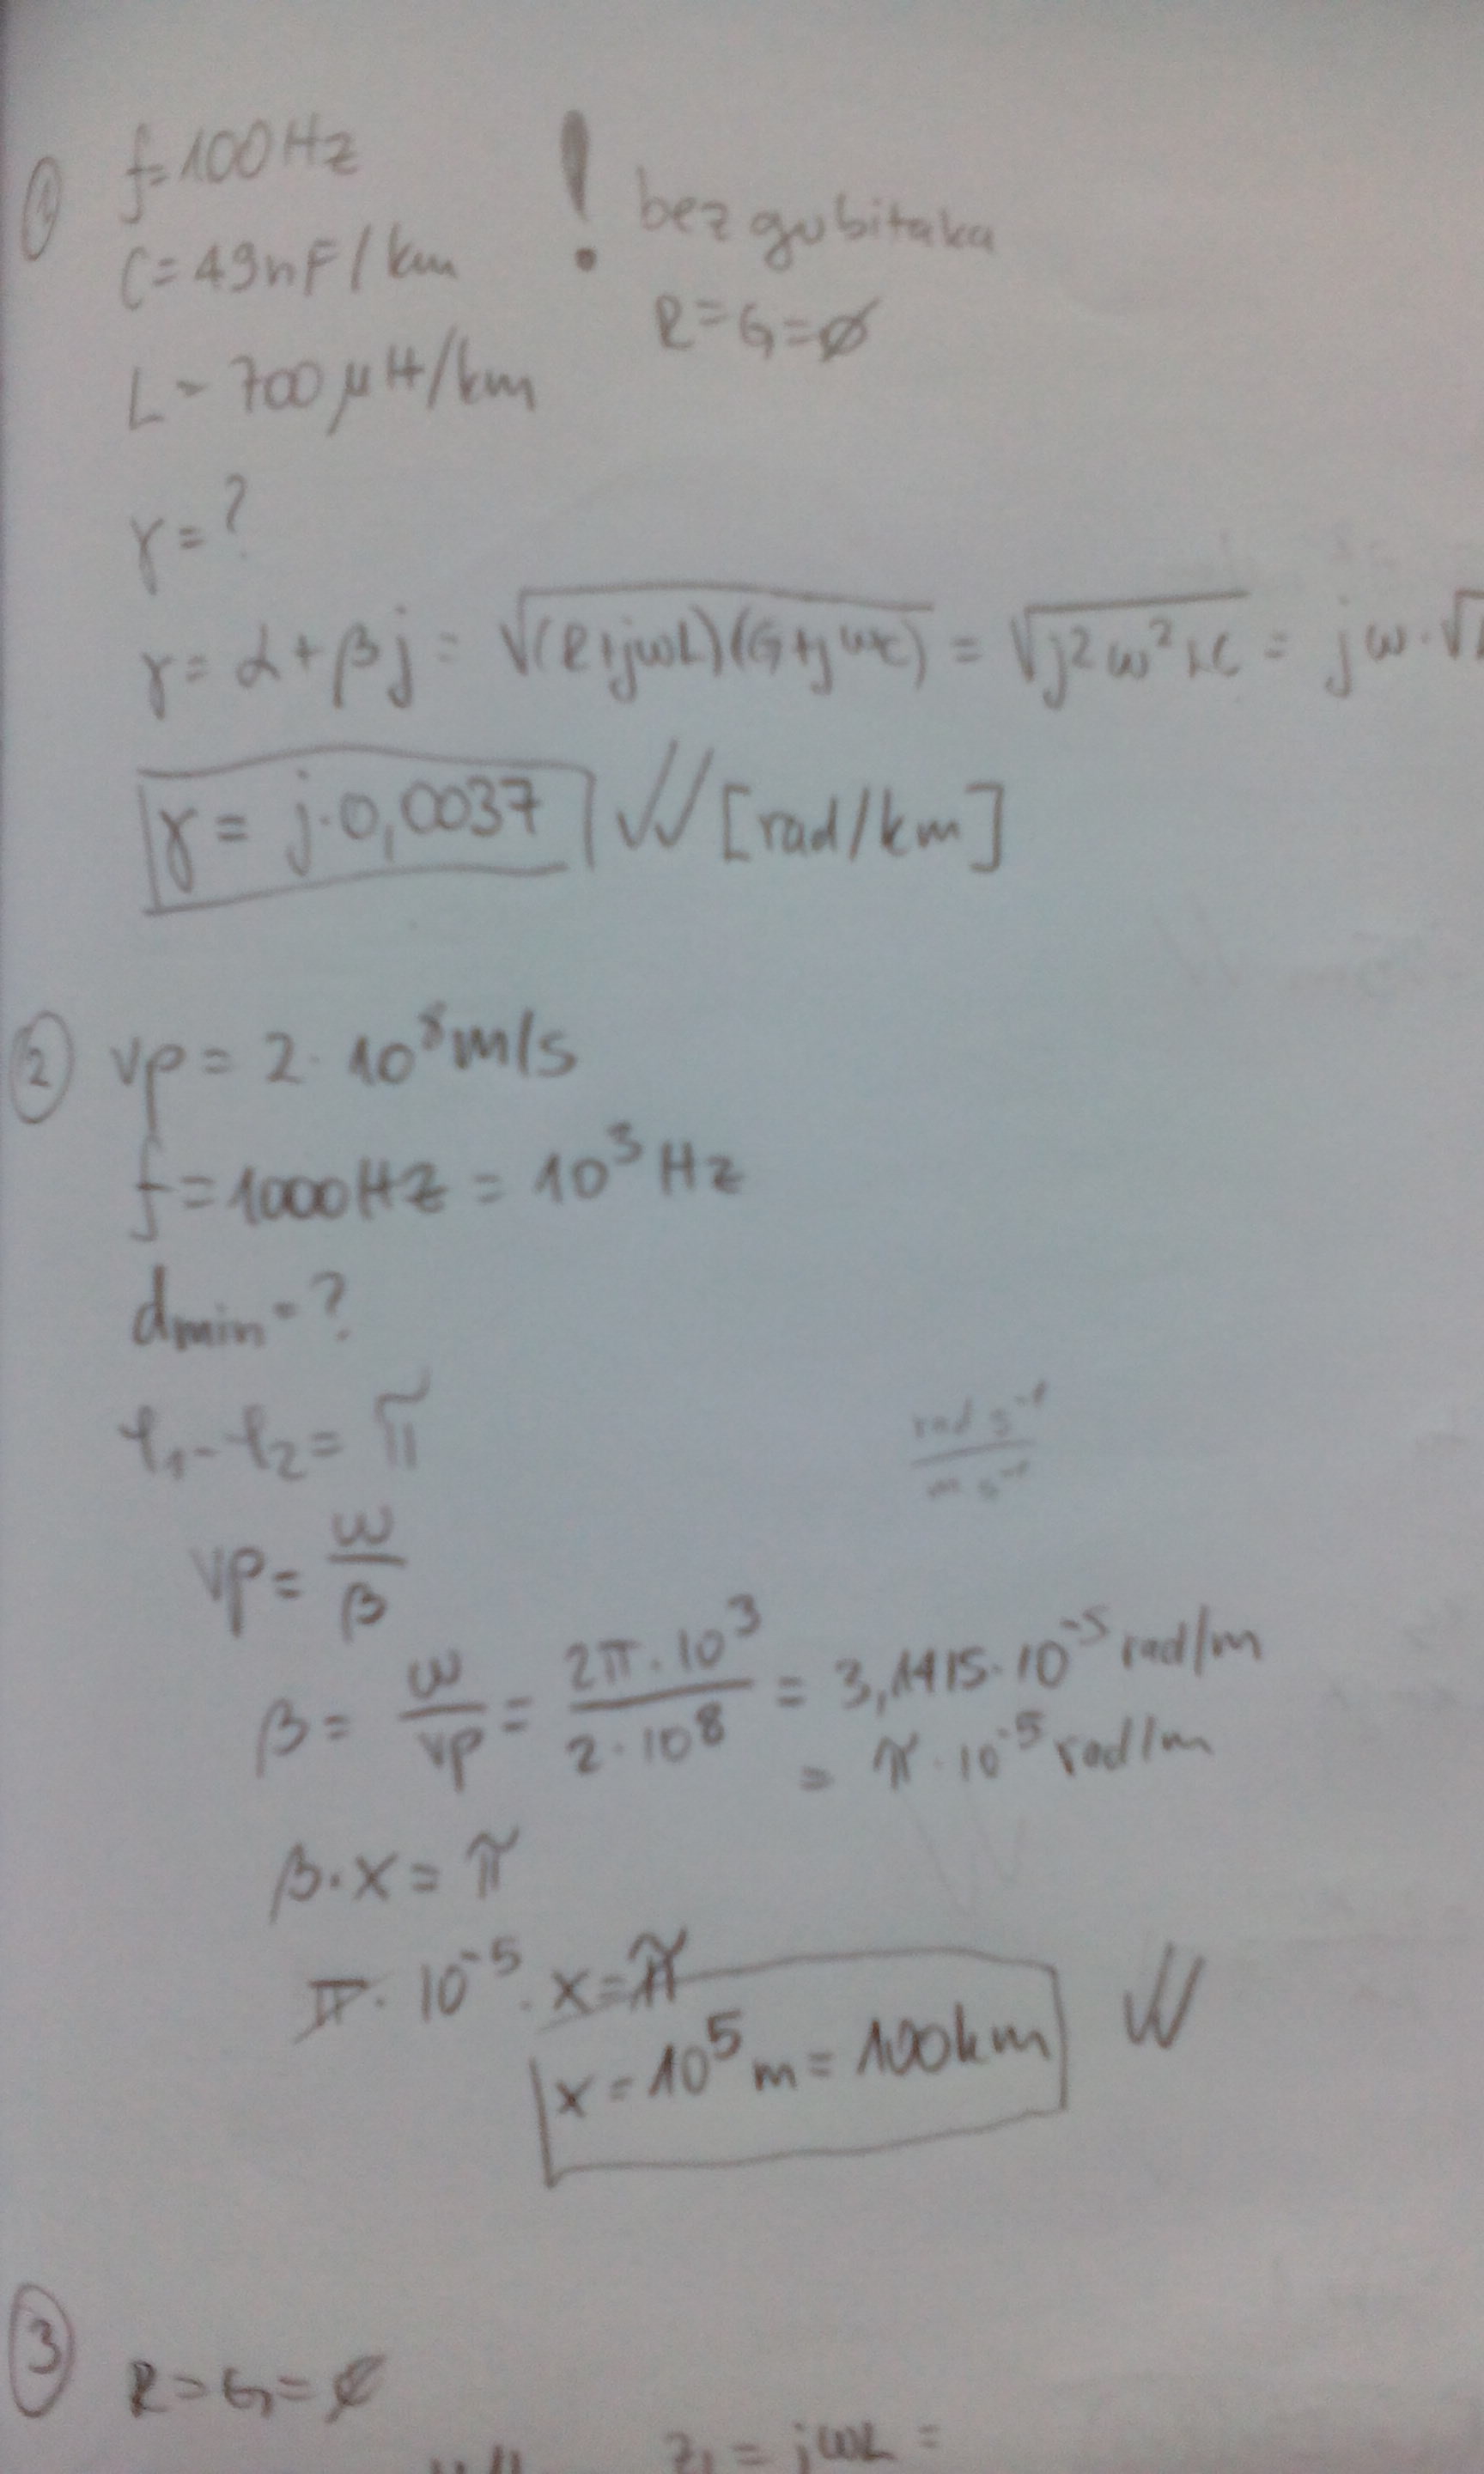 ① f=100Hz
! bez gubitaka
C=49nF/km
R=G=∅
L=700μH/km
γ=?
γ=α+βj=√(R+jωL)(G+jωC) = √j²ω²LC = jω·√
γ= j·0,0037 [rad/km]
② vp=2·10⁸m/s
f=1000Hz=10³Hz
dmin=?
φ₁-φ₂=π
rad s⁻¹
m s⁻¹
vp=ω/β
β=ω/vp=2π·10³/2·10⁸=3,1415·10⁻⁵rad/m
=π·10⁻⁵rad/m
β·x=π
π·10⁻⁵·x=π
x=10⁵m=100km
③ R=G=∅
Z₁=jωL=